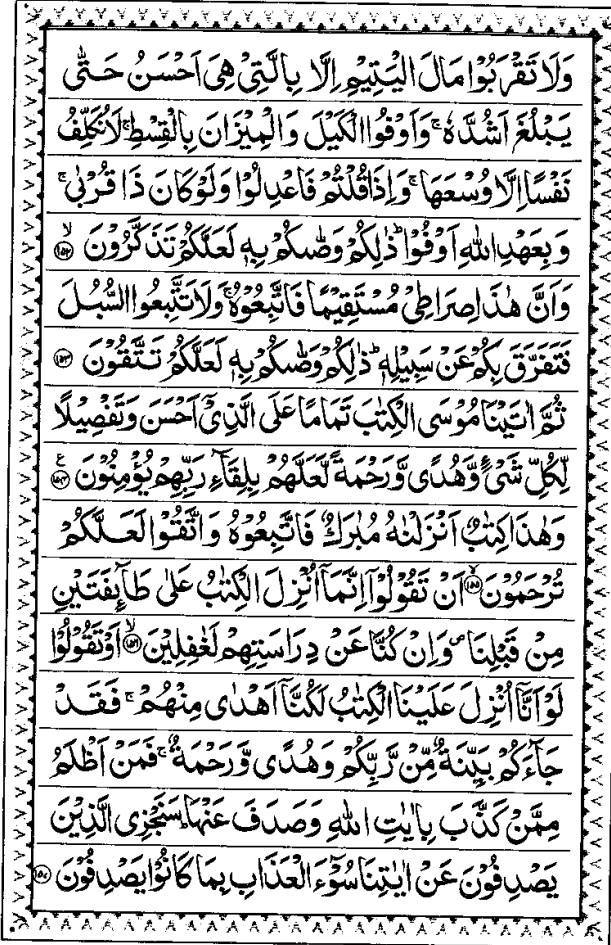 وَلَا تَقْرَبُوْا مَالَ الْيَتِيْمِ اِلَّا بِالَّتِيْ هِيَ اَحْسَنُ حَتّٰى
يَبْلُغَ اَشُدَّهٗ ۚ وَاَوْفُوا الْكَيْلَ وَالْمِيْزَانَ بِالْقِسْطِ ۚ لَا نُكَلِّفُ
نَفْسًا اِلَّا وُسْعَهَا ۚ وَاِذَا قُلْتُمْ فَاعْدِلُوْا وَلَوْ كَانَ ذَا قُرْبٰى ۚ
وَبِعَهْدِ اللّٰهِ اَوْفُوْا ؕ ذٰلِكُمْ وَصّٰىكُمْ بِهٖ لَعَلَّكُمْ تَذَكَّرُوْنَ ۙ‏﴿۱۵۲﴾
وَاَنَّ هٰذَا صِرَاطِيْ مُسْتَقِيْمًا فَاتَّبِعُوْهُ ۚ وَلَا تَتَّبِعُوا السُّبُلَ
فَتَفَرَّقَ بِكُمْ عَنْ سَبِيْلِهٖ ؕ ذٰلِكُمْ وَصّٰىكُمْ بِهٖ لَعَلَّكُمْ تَتَّقُوْنَ ﴿۱۵۳﴾
ثُمَّ اٰتَيْنَا مُوْسَى الْكِتٰبَ تَمَامًا عَلَى الَّذِيْۤ اَحْسَنَ وَتَفْصِيْلًا
لِّكُلِّ شَيْءٍ وَّهُدًى وَّرَحْمَةً لَّعَلَّهُمْ بِلِقَآءِ رَبِّهِمْ يُؤْمِنُوْنَ ﴿۱۵۴﴾ ع
وَهٰذَا كِتٰبٌ اَنْزَلْنٰهُ مُبٰرَكٌ فَاتَّبِعُوْهُ وَاتَّقُوْا لَعَلَّكُمْ
تُرْحَمُوْنَ ۙ‏﴿۱۵۵﴾ اَنْ تَقُوْلُوْۤا اِنَّمَاۤ اُنْزِلَ الْكِتٰبُ عَلٰى طَآئِفَتَيْنِ
مِنْ قَبْلِنَا ۪ وَاِنْ كُنَّا عَنْ دِرَاسَتِهِمْ لَغٰفِلِيْنَ ۙ‏﴿۱۵۶﴾ اَوْ تَقُوْلُوْا
لَوْ اَنَّاۤ اُنْزِلَ عَلَيْنَا الْكِتٰبُ لَكُنَّاۤ اَهْدٰى مِنْهُمْ ۚ فَقَدْ
جَآءَكُمْ بَيِّنَةٌ مِّنْ رَّبِّكُمْ وَهُدًى وَّرَحْمَةٌ ۚ فَمَنْ اَظْلَمُ
مِمَّنْ كَذَّبَ بِاٰيٰتِ اللّٰهِ وَصَدَفَ عَنْهَا ؕ سَنَجْزِي الَّذِيْنَ
يَصْدِفُوْنَ عَنْ اٰيٰتِنَا سُوْٓءَ الْعَذَابِ بِمَا كَانُوْا يَصْدِفُوْنَ ﴿۱۵۷﴾